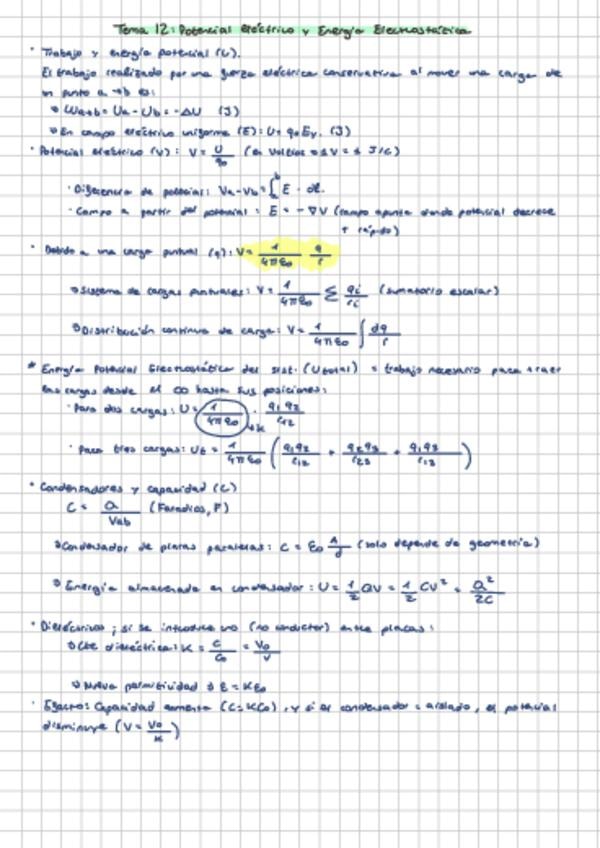 Tema 12: Potencial eléctrico y Energía Electrostática
· Trabajo y energía potencial (U).
El trabajo realizado por una fuerza eléctrica conservativa al mover una carga de
un punto a → b es:
→ Wa→b = Ua - Ub = -ΔU (J)
→ En campo eléctrico uniforme (E): U = q₀Ey. (J)
· Potencial eléctrico (V): V = U/q₀ (en Voltios → 1V = 1 J/C)
· Diferencia de potencial: Va - Vb = ∫ₐᵇ E · dl.
· Campo a partir del potencial: E = -∇V (campo apunta donde potencial decrece
+ rápido)
· Debido a una carga puntual (q): V = 1/4πε₀ q/r
→ Sistema de cargas puntuales: V = 1/4πε₀ Σ qi/ri (sumatorio escalar)
→ Distribución continua de carga: V = 1/4πε₀ ∫ dq/r
* Energía Potencial Electrostática del sist. (Utotal) = trabajo necesario para traer
las cargas desde el ∞ hasta sus posiciones:
· Para dos cargas: U = 1/4πε₀ · q₁q₂/r₁₂
→ K
· Para tres cargas: Ut = 1/4πε₀ (q₁q₂/r₁₂ + q₂q₃/r₂₃ + q₁q₃/r₁₃)
· Condensadores y capacidad (C)
C = Q/Vab (Faradios, F)
→ Condensador de placas paralelas: C = ε₀ A/d (solo depende de geometría)
→ Energía almacenada en condensador: U = 1/2 QV = 1/2 CV² = Q²/2C
· Dieléctricos; si se introduce uno (no conductor) entre placas:
→ Cte dieléctrica: K = C/C₀ = V₀/V
→ Nueva permitividad → ε = Kε₀
· Efecto: Capacidad aumenta (C = KC₀), y si el condensador = aislado, el potencial
disminuye (V = V₀/K)